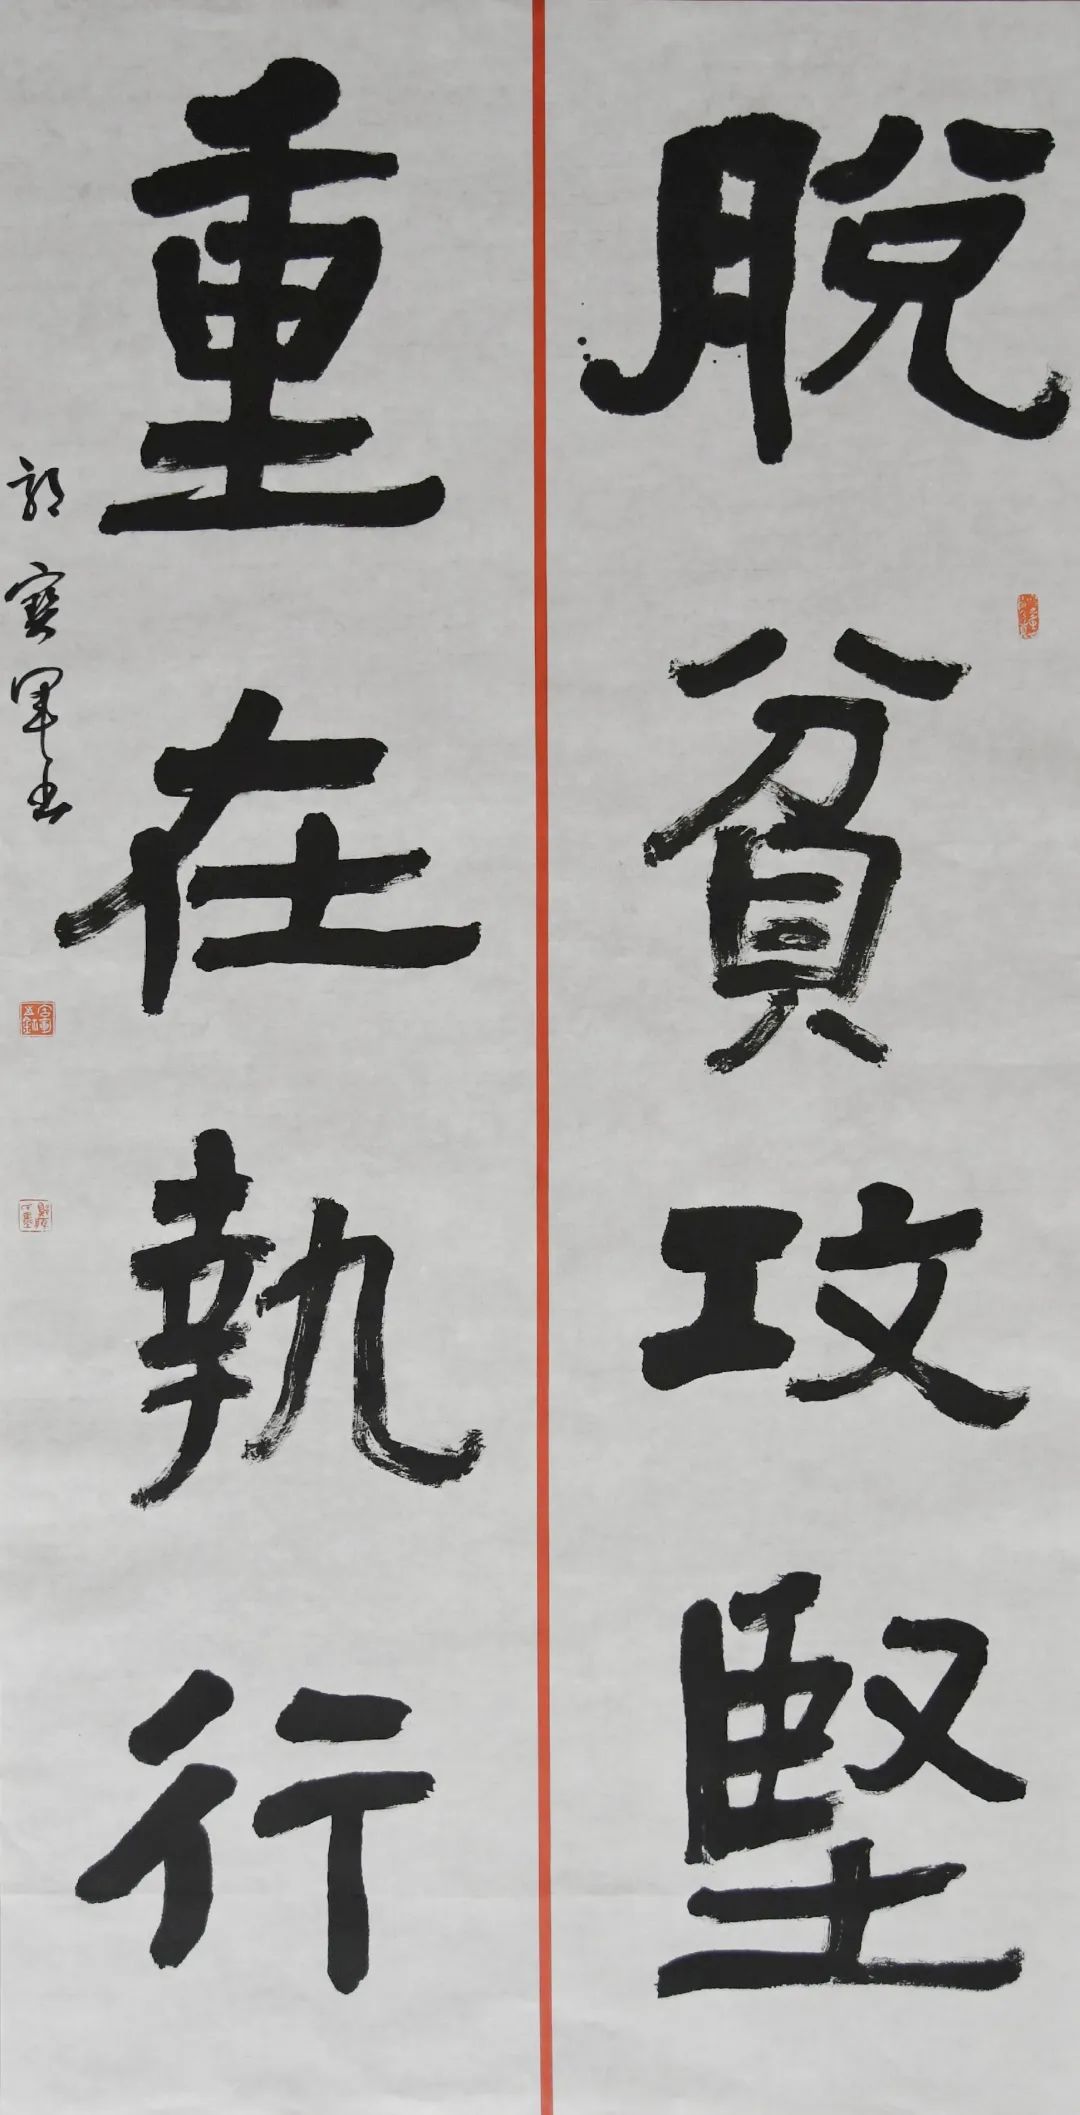 脫貧攻堅
重在執行
郭寶軍书